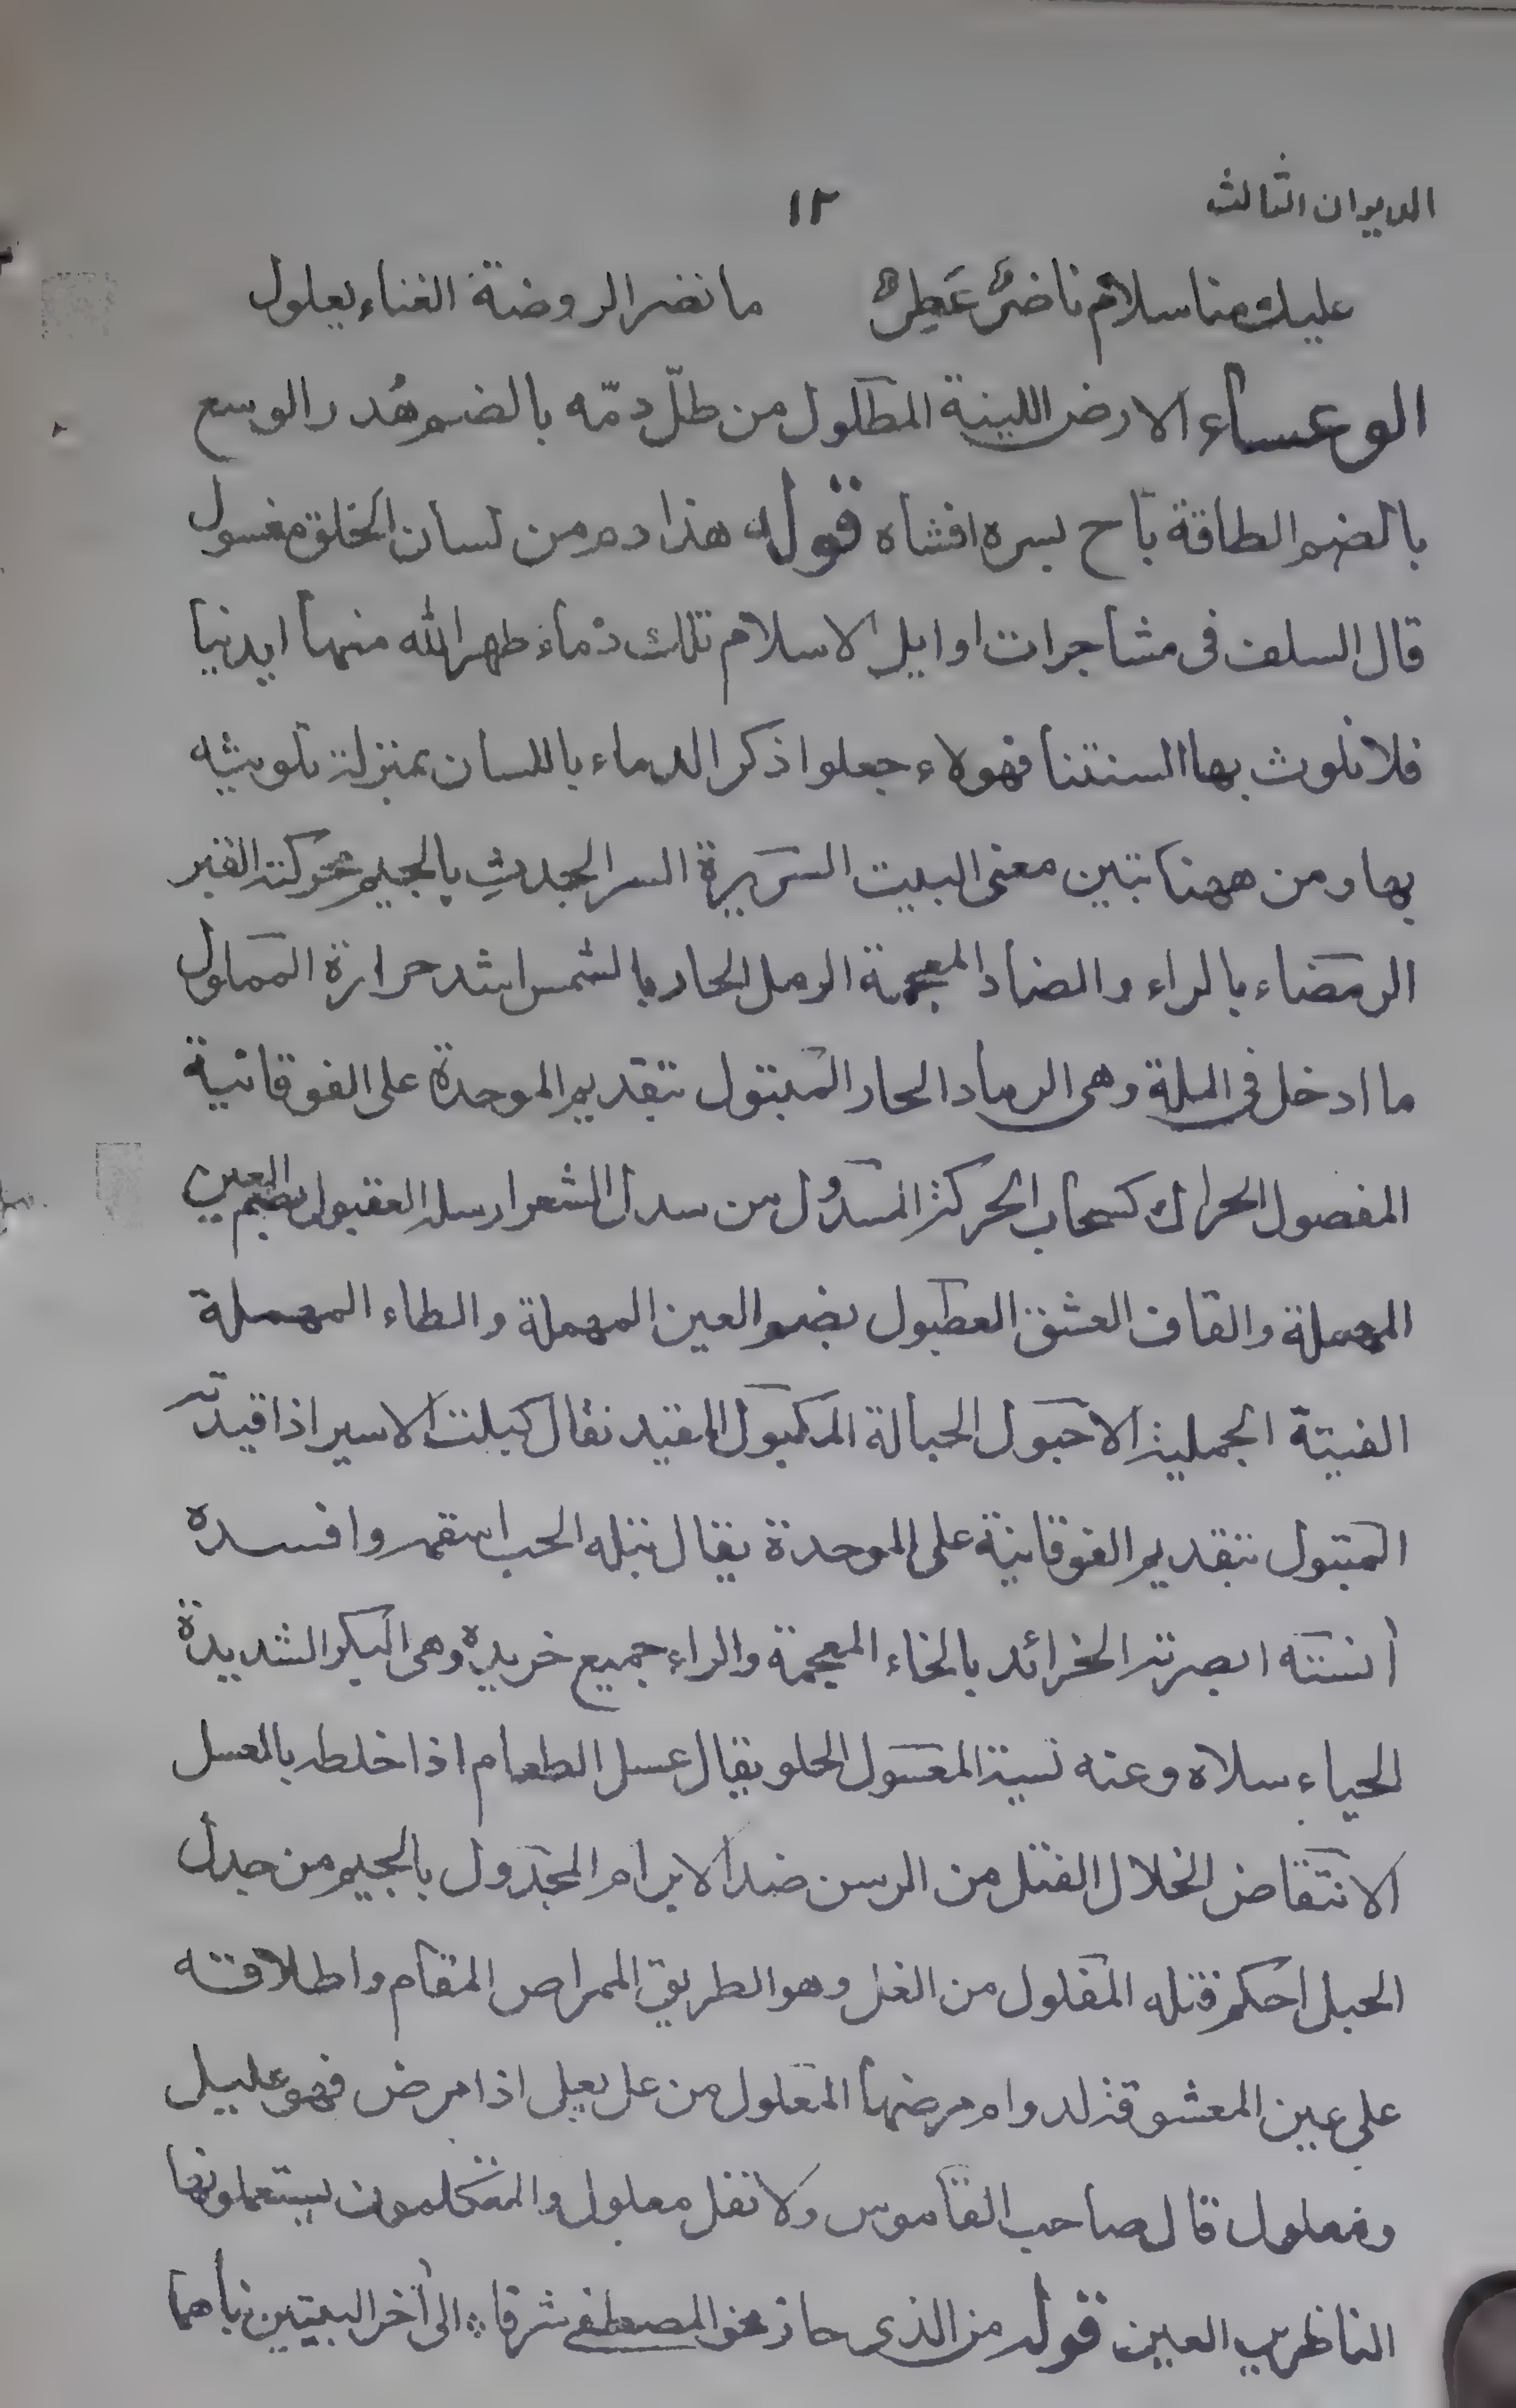 الديوان الثالث ١٢
عليك منا سلام ناضر عطر ما نضر الروضة الغناء يعلول
الوعساء الارض اللينة المطلول من طلّ دمّه بالضم هُدر الوسع
بالضم الطاقة باح بسره افشاه قوله هذا دم من لسان الخلق مغسول
قال السلف فى مشاجرات اوايل الاسلام تلك دماء طهر الله منها ايدنيا
فلا نلوث بها السنتنا فهولاء جعلوا ذكر الدماء باللسان بمنزلة تلويثه
بها ومن ههنا تبين معنى البيت السريرة السر الجدث بالجيم محركة القبر
الرمضاء بالراء والضاد المعجمة الرمل الحار بالشمس اشد حرارة المملول
ما ادخل فى الملة وهى الرماد الحار المبتول بتقديم الموحدة على الفوقانية
المفصول الحراك كسحاب الحركة المسدول من سدل الشعر ارسله العقبول بضم العين
المهملة والقاف العشق العطبول بضم العين المهملة والطاء المهملة
الفيتة الجميلة الاحبول الحبالة المكبول المقيد نقال كبلت الاسير اذا قيدته
المتبول بتقديم الفوقانية على الموحدة يقال تبله الحب اسقمه وافسده
أنسته ابصرته الخرائد بالخاء المعجمة والراء جميع خريدة وهى البكر الشديدة
الحياء سلاه وعنه نسيه المعسول الحلو يقال عسل الطعام اذا خلطه بالعسل
الانتقاض انحلال الفتل من الرسن ضد الابرام المجدول بالجيم من جدل
الحبل احكم فتله المغلول من الغل وهو الطريق الممراص المقام واطلاقته
على عين المعشوقة لدوام مرضها المعلول من عل يعل اذا مرض فهو عليل
ومعلول قال صاحب القاموس ولا تقل معلول والمتكلمون يستعملونها
الناظرين العين قوله من الذى حاز نحو المصطفى شرفا الى أخر البيتين باهما